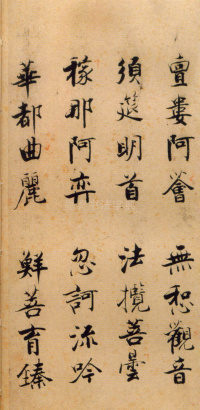 亶婁阿薈 無恕觀音
須筵明首 法攬菩曇
稼那阿弈 忽訶流吟
華都曲麗 鮮菩育臻